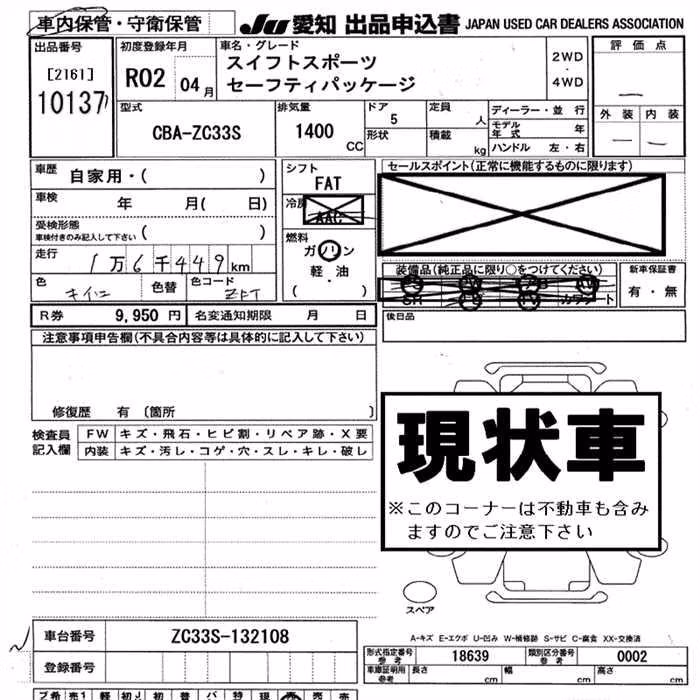 車内保管・守衛保管
JU 愛知 出品申込書 JAPAN USED CAR DEALERS ASSOCIATION
出品番号
[2161]
10137
初度登録年月
R02 04 月
車名・グレード
スイフトスポーツ
セーフティパッケージ
2WD
・
4WD
評価点
外装 内装
型式
CBA-ZC33S
排気量
1400 CC
ドア
5
形状
定員
人
積載
kg
ディーラー・並行
モデル年式 年
ハンドル 左・右
車歴
自家用・( )
車検 年 月( 日)
受検形態
車検付きのみ記入して下さい ( )
走行
1万6千449km
色
キイロ
色替
色コード
ZFT
シフト
FAT
冷房
AAC
燃料
ガソリン
軽・油
( ・ )
セールスポイント(正常に機能するものに限ります)
装備品(純正品に限り○をつけてください)
新車保証書
有・無
後日品
R券 9,950 円
名変通知期限 月 日
注意事項申告欄(不具合内容等は具体的に記入して下さい)
修復歴 有 〔箇所 〕
検査員記入欄
FW キズ・飛石・ヒビ割・リペア跡・X要
内装 キズ・汚レ・コゲ・穴・スレ・キレ・破レ
現状車
※このコーナーは不動車も含み
ますのでご注意下さい
スペア
A-キズ E-エクボ U-凹み W-補修跡 S-サビ C-腐食 XX-交換済
車台番号 ZC33S-132108
登録番号
形式指定番号 参考 18639
類別区分番号 参考 0002
車庫証明用 参考 長さ cm 幅 cm 高さ cm